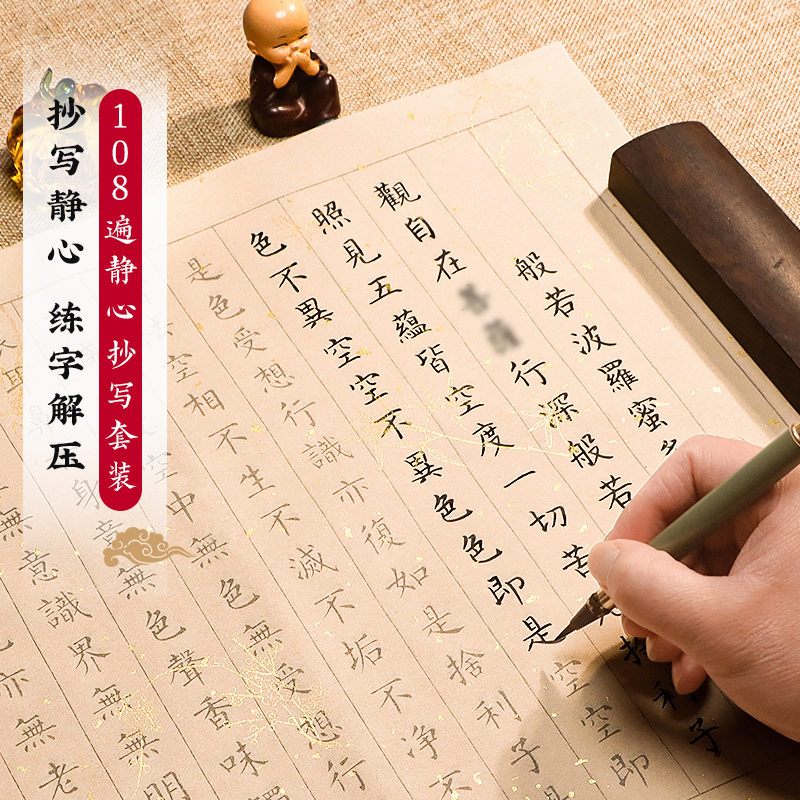 抄写静心 练字解压
108遍静心抄写套装
般若波羅蜜
觀自在 行深般若
照見五蘊皆空度一切苦 子
色不異空空不異色色即是空空即
是色受想行識亦復如是捨利子是
空相不生不滅不垢不淨不
空中無色無受想行
身意無色聲香味
無意識界無無明
亦無老